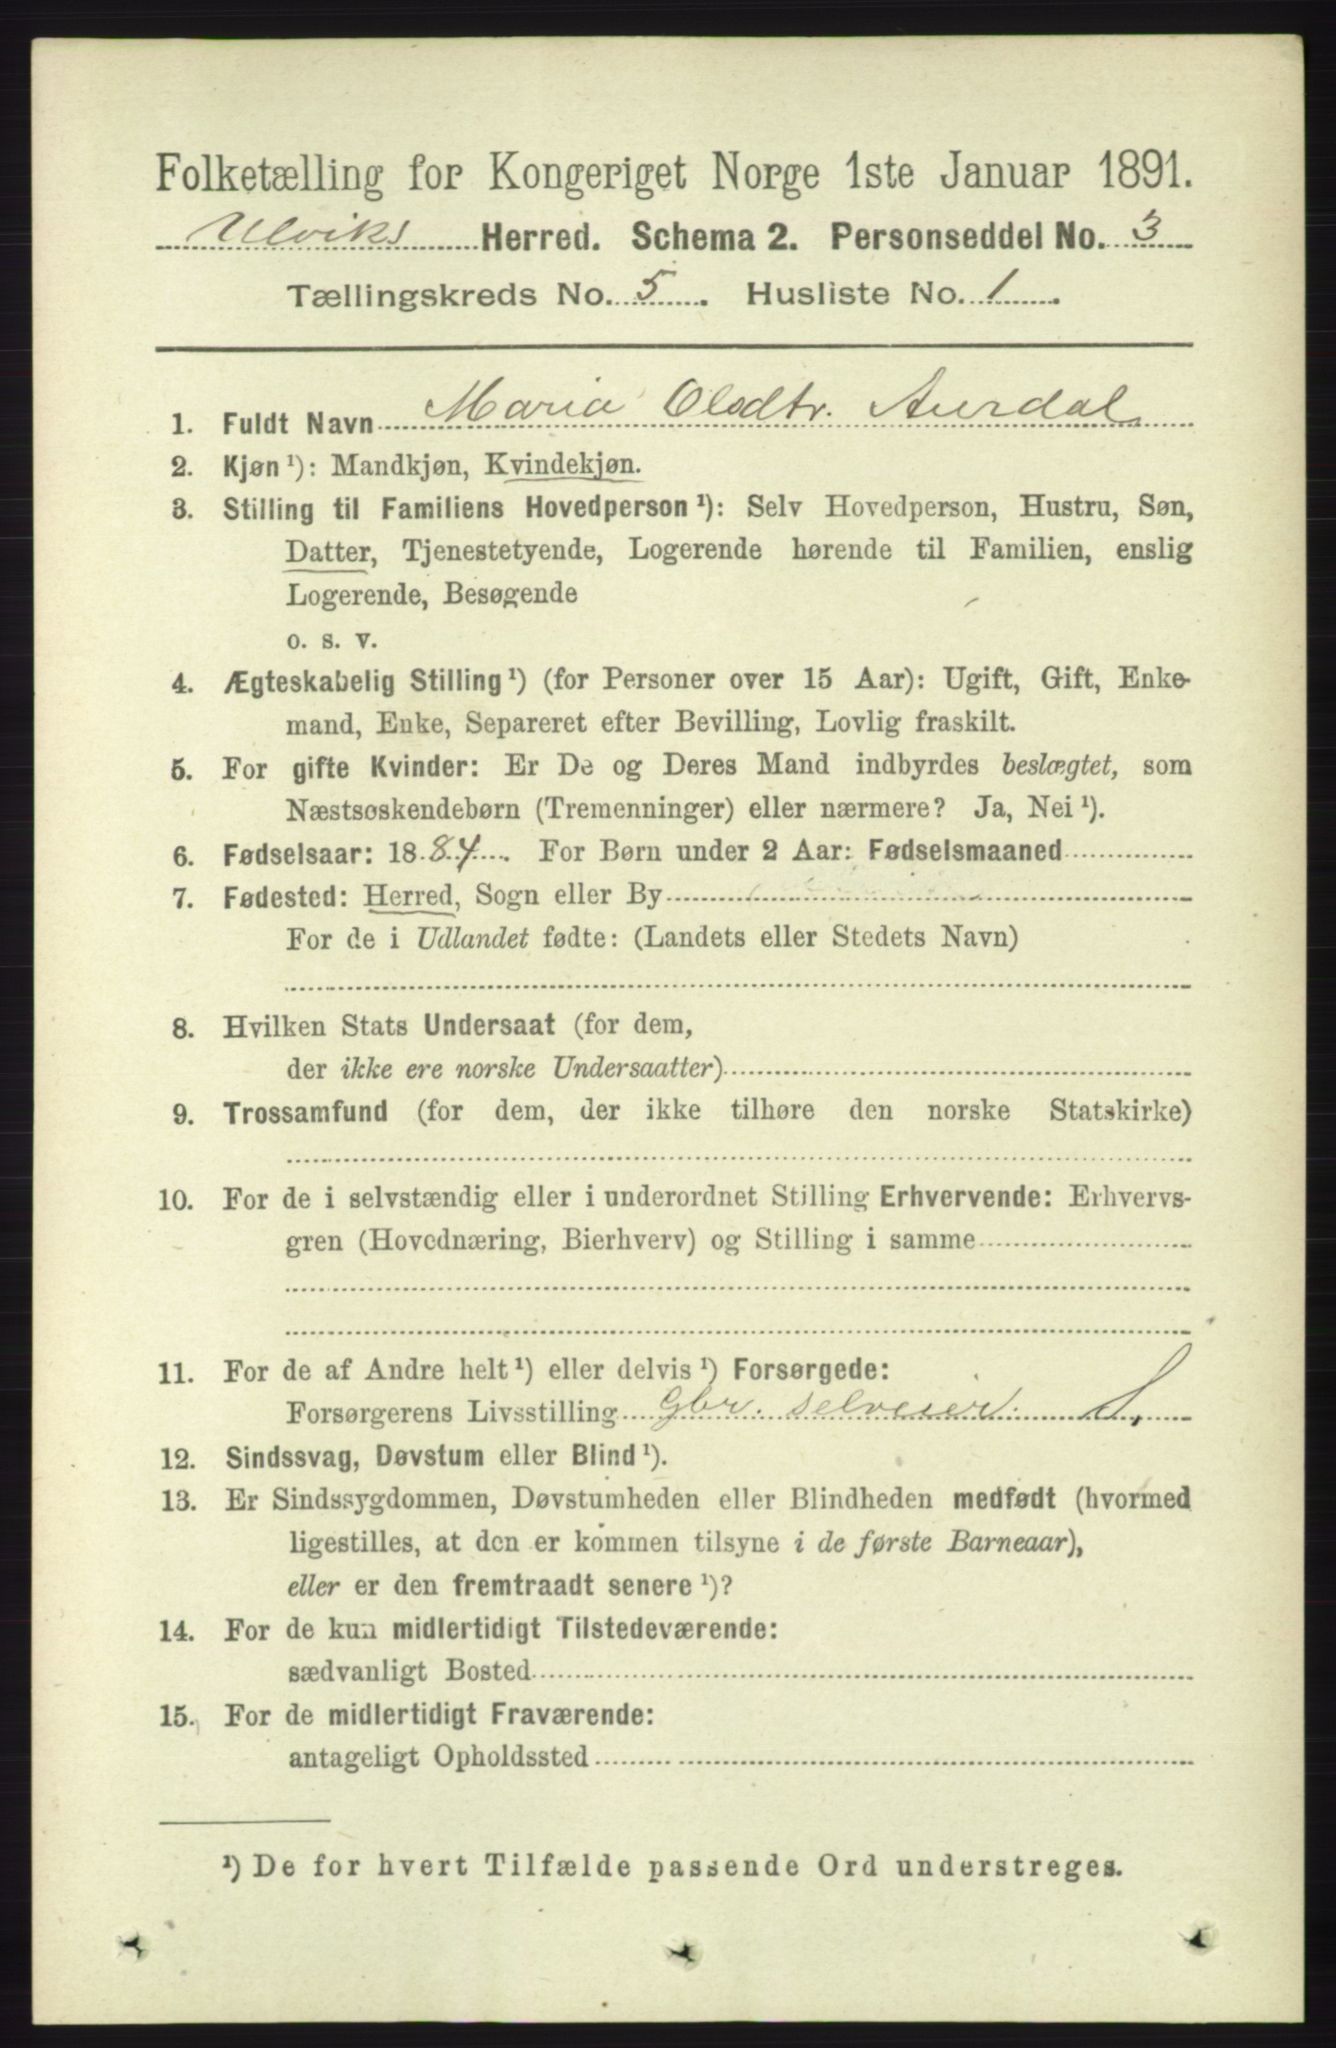 Folketælling for Kongeriget Norge 1ste Januar 1891.
Ulviks Herred. Schema 2. Personseddel No. 3
Tællingskreds No. 5. Husliste No. 1.
1. Fuldt Navn Maria Olsdtr. Aurdal
2. Kjøn¹): Mandkjøn, Kvindekjøn.
3. Stilling til Familiens Hovedperson¹): Selv Hovedperson, Hustru, Søn,
Datter, Tjenestetyende, Logerende hørende til Familien, enslig
Logerende, Besøgende
o. s. v.
4. Ægteskabelig Stilling¹) (for Personer over 15 Aar): Ugift, Gift, Enke-
mand, Enke, Separeret efter Bevilling, Lovlig fraskilt.
5. For gifte Kvinder: Er De og Deres Mand indbyrdes beslægtet, som
Næstsøskendebørn (Tremenninger) eller nærmere? Ja, Nei¹).
6. Fødselsaar: 1884. For Børn under 2 Aar: Fødselsmaaned
7. Fødested: Herred, Sogn eller By
For de i Udlandet fødte: (Landets eller Stedets Navn)
8. Hvilken Stats Undersaat (for dem,
der ikke ere norske Undersaatter)
9. Trossamfund (for dem, der ikke tilhøre den norske Statskirke)
10. For de i selvstændig eller i underordnet Stilling Erhvervende: Erhvervs-
gren (Hovednæring, Bierhverv) og Stilling i samme
11. For de af Andre helt¹) eller delvis¹) Forsørgede:
Forsørgerens Livsstilling Gbr. selveier. S,
12. Sindssvag, Døvstum eller Blind¹).
13. Er Sindssygdommen, Døvstumheden eller Blindheden medfødt (hvormed
ligestilles, at den er kommen tilsyne i de første Barneaar),
eller er den fremtraadt senere¹)?
14. For de kun midlertidigt Tilstedeværende:
sædvanligt Bosted
15. For de midlertidigt Fraværende:
antageligt Opholdssted
¹) De for hvert Tilfælde passende Ord understreges.